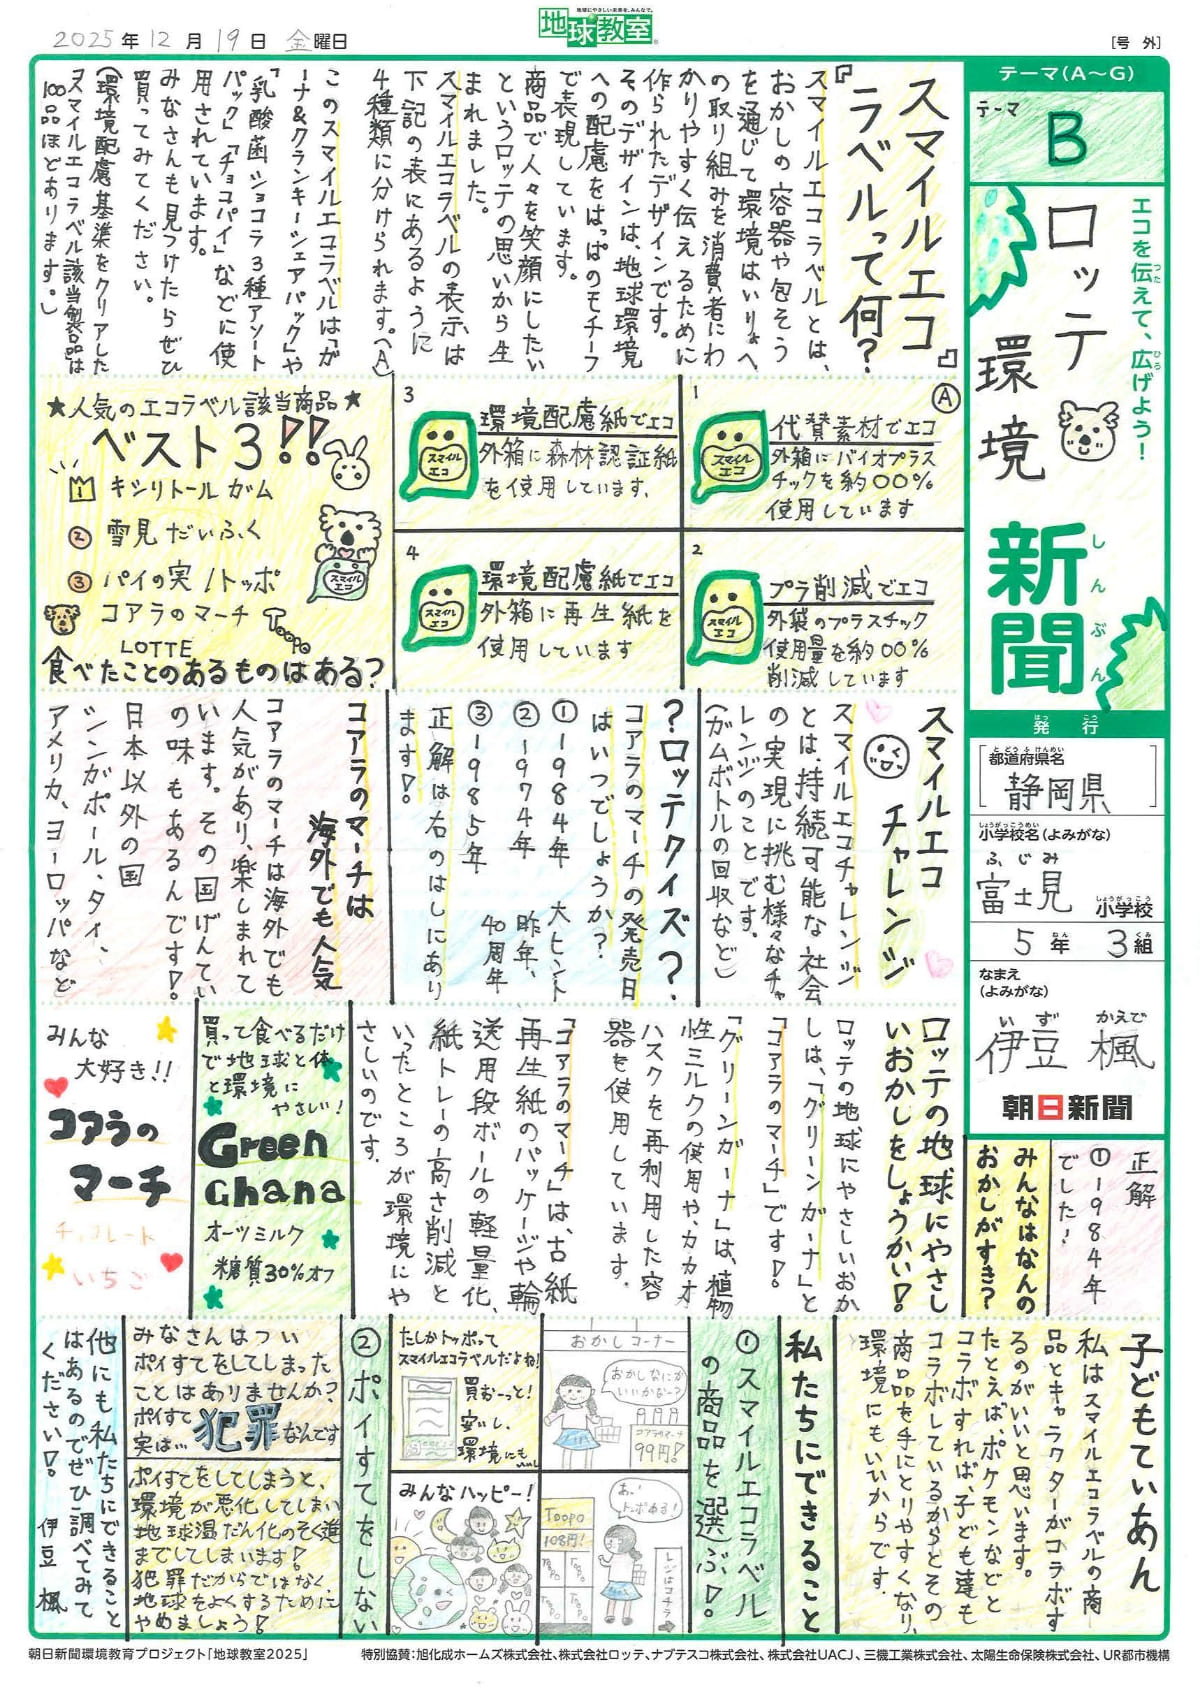 2025年12月19日 金曜日
地球にやさしい未来を、みんなで。
地球教室
[号外]
テーマ(A〜G)
テーマ
B
エコを伝えて、広げよう!
つた
ひろ
ロッテ
環境
新聞
しんぶん
発行
はっこう
都道府県名
とどうふけんめい
静岡県
小学校名(よみがな)
しょうがっこうめい
ふじみ
富士見
小学校
しょうがっこう
5年 3組
ねん くみ
なまえ
(よみがな)
いず かえで
伊豆 楓
朝日新聞
『スマイルエコ
ラベルって何?』
スマイルエコラベルとは、
おかしの容器や包そう
を通じて環境はいりょへ
の取り組みを消費者にわ
かりやすく伝えるために
作られたデザインです。
そのデザインは、地球環境
への配慮をはっぱのモチーフ
で表現しています。
商品で人々を笑顔にしたい
というロッテの思いから生
まれました。
スマイルエコラベルの表示は
下記の表にあるように
4種類に分けられます。(A)
このスマイルエコラベルは「ガ
ーナ&クランキーシェアパック」や
「乳酸菌ショコラ3種アソート
パック」「チョコパイ」などに使
用されています。
みなさんも見つけたらぜひ
買ってみてください。
(環境配慮基準をクリアした
スマイルエコラベル該当製品は
100品ほどあります。)
A
1
代賛素材でエコ
外箱にバイオプラス
チックを約〇〇%
使用しています
スマイル
エコ
2
プラ削減でエコ
外袋のプラスチック
使用量を約〇〇%
削減しています
スマイル
エコ
3
環境配慮紙でエコ
外箱に森林認証紙
を使用しています、
スマイル
エコ
4
環境配慮紙でエコ
外箱に再生紙を
使用しています
スマイル
エコ
★人気のエコラベル該当商品★
ベスト3!!
1 キシリトールガム
② 雪見だいふく
③ パイの実/トッポ
コアラのマーチ
スマイル
エコ
Toppo
LOTTE
食べたことのあるものはある?
スマイルエコ
チャレンジ
スマイルエコチャレンジ
とは、持続可能な社会
の実現に挑む様々なチャ
レンジのことです。
(ガムボトルの回収など)
?ロッテクイズ?
コアラのマーチの発売日
はいつでしょうか?
①1984年 大ヒント
②1974年 昨年、
③1985年 40周年
正解は右のはしにあり
ます!。
コアラのマーチは
海外でも人気
コアラのマーチは海外でも
人気があり、楽しまれて
います。その国げんてい
の味もあるんです!。
日本以外の国
シンガポール、タイ、
アメリカ、ヨーロッパなど
ロッテの地球にやさし
いおかしをしょうかい!。
ロッテの地球にやさしいおか
しは、「グリーンガーナ」と
「コアラのマーチ」です!。
「グリーンガーナ」は、植物
性ミルクの使用や、カカオ
ハスクを再利用した容
器を使用しています。
「コアラのマーチ」は、古紙
再生紙のパッケージや輸
送用段ボールの軽量化、
紙トレーの高さ削減と
いったところが環境にや
さしいのです。
買って食べるだけ
で地球と体
と環境に
やさしい!
Green
Ghana
オーツミルク
糖質30%オフ
みんな
大好き!!
コアラの
マーチ
チョコレート
いちご
正解
①1984年
でした!
みんなはなんの
おかしがすき?
子どもていあん
私はスマイルエコラベルの商
品とキャラクターがコラボす
るのがいいと思います。
たとえば、ポケモンなどと
コラボすれば、子ども達も
コラボしているからとその
商品を手にとりやすくなり、
環境にもいいからです。
私たちにできること
①スマイルエコラベル
の商品を選ぶ!。
おかしコーナー
おかしなにが
いいかな~?
コアラのマーチ
99円!
あ、!
トッポある!
Toppo
108円!
レジはコチラ
たしかトッポって
スマイルエコラベルだよね!
買お~っと!
安いし、
環境にもいいし
みんなハッピー!
②ポイすてをしない
みなさんはつい
ポイすてをしてしまった
ことはありませんか?
ポイすて
実は… 犯罪なんです
ポイすてをしてしまうと、
環境が悪化してしまい
地球温だん化のそく進
までしてしまいます!
犯罪だからではなく、
地球をよくするために
やめましょう!
他にも私たちにできること
はあるのでぜひ調べてみて
ください!。 伊豆 楓
朝日新聞環境教育プロジェクト「地球教室2025」
特別協賛:旭化成ホームズ株式会社、株式会社ロッテ、ナブテスコ株式会社、株式会社UACJ、三機工業株式会社、太陽生命保険株式会社、UR都市機構